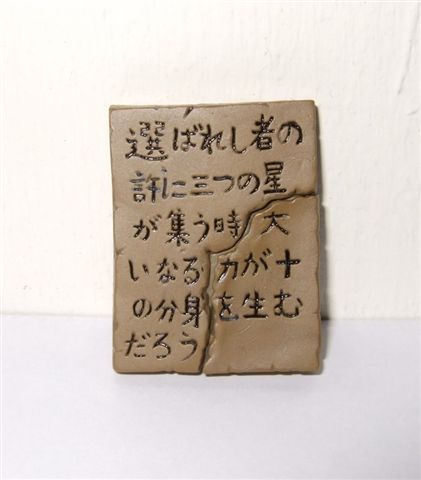 選ばれし者の
許に三つの星
が集う時 大
いなる力が十
の分身を生む
だろう